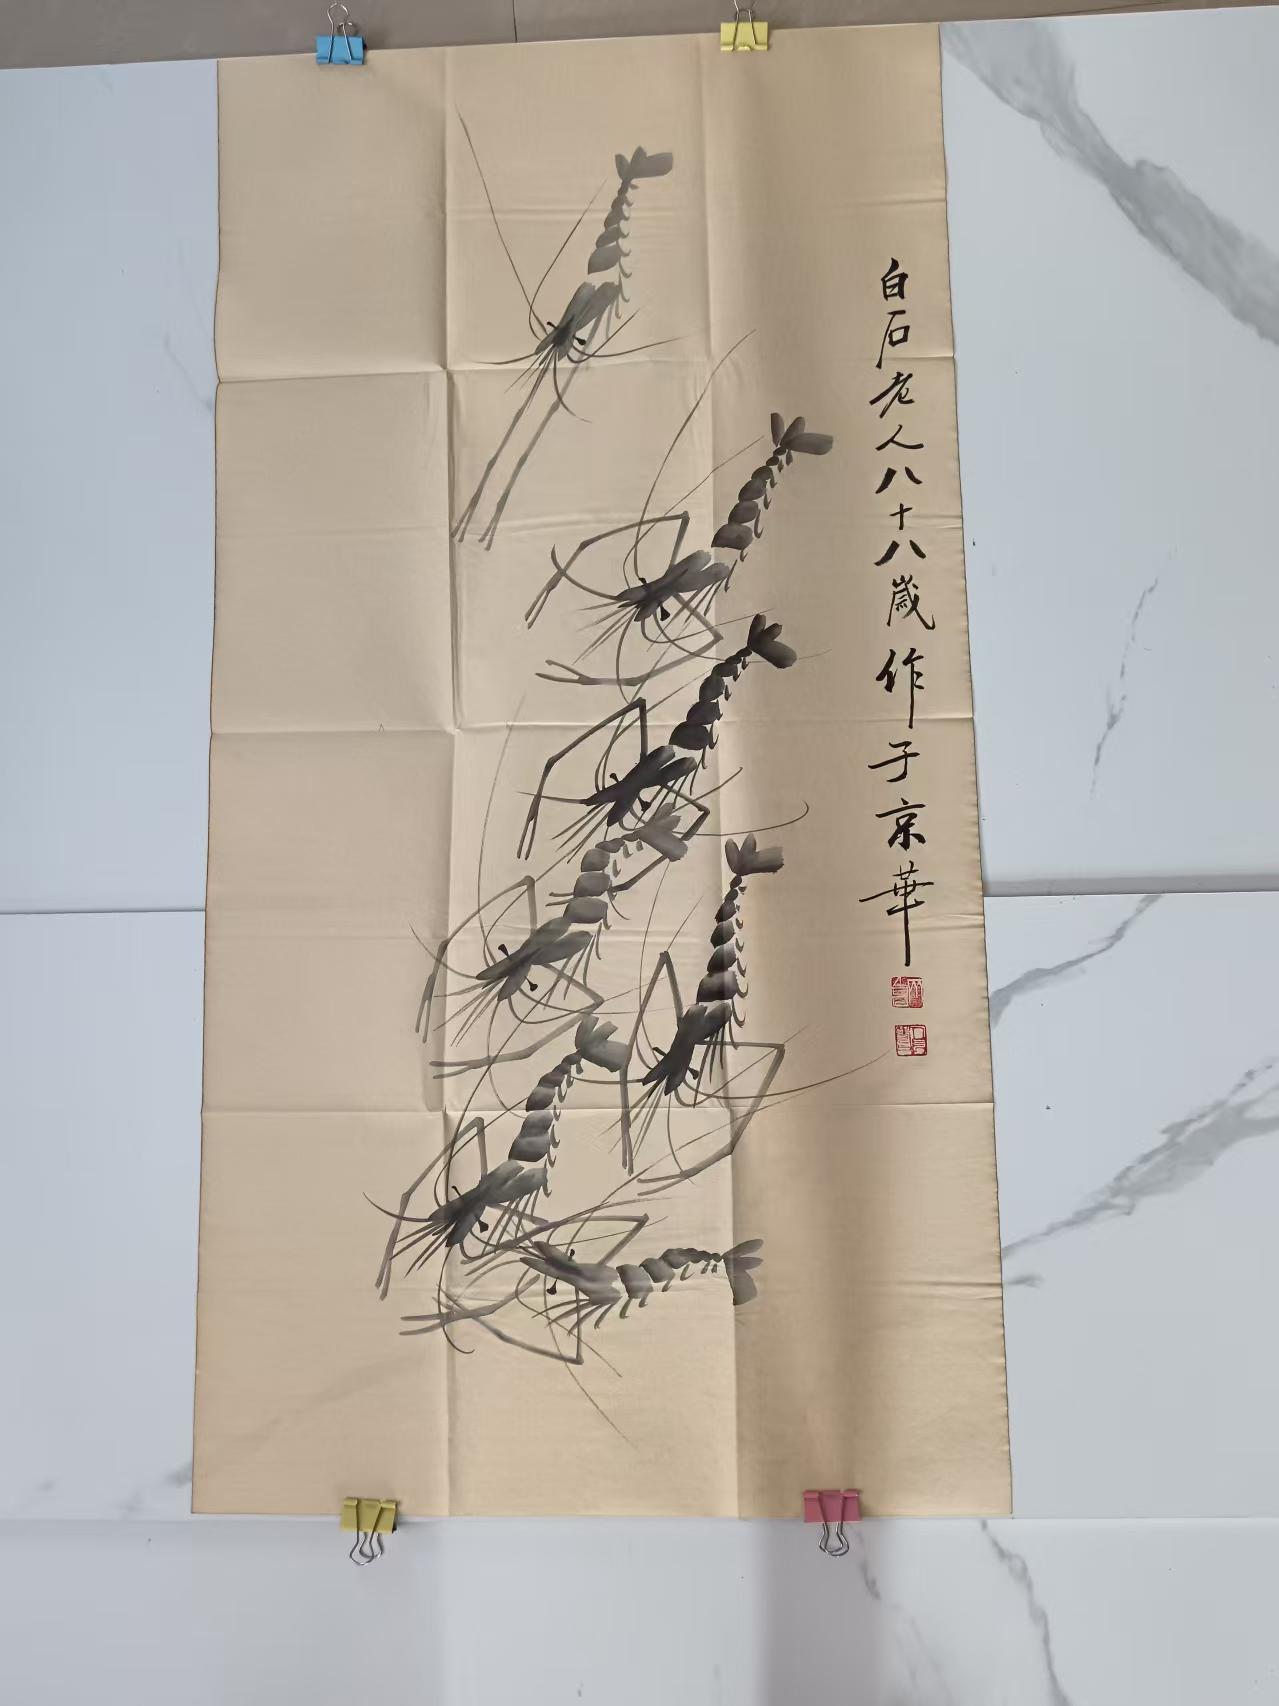 白石老人八十八歲作于京華